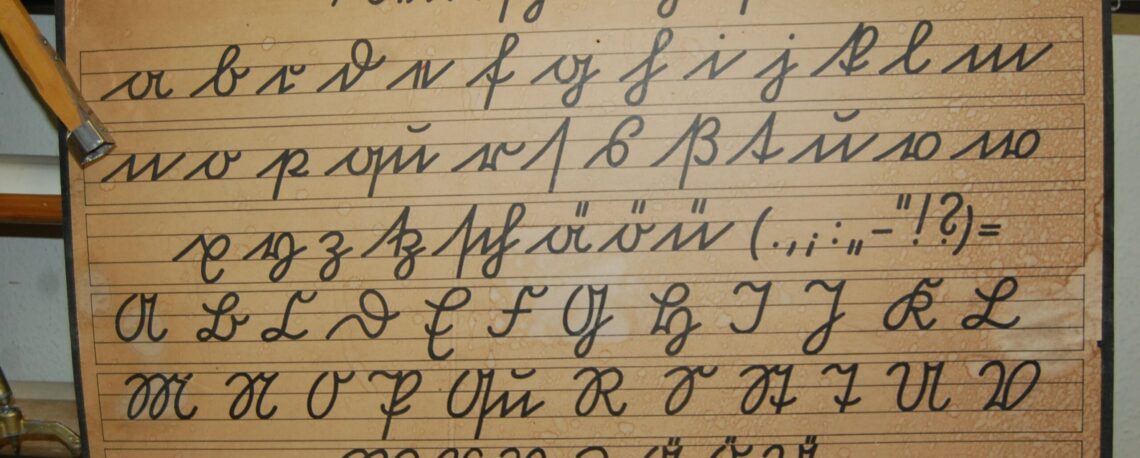 a b c d e f g h i j k l m
n o p qu r ſ s ß t u v w
x y z tz ſch ä ö ü (.,;:„-"!?)=
A B C D E F G H I J K L
M N O P Qu R S St T U V